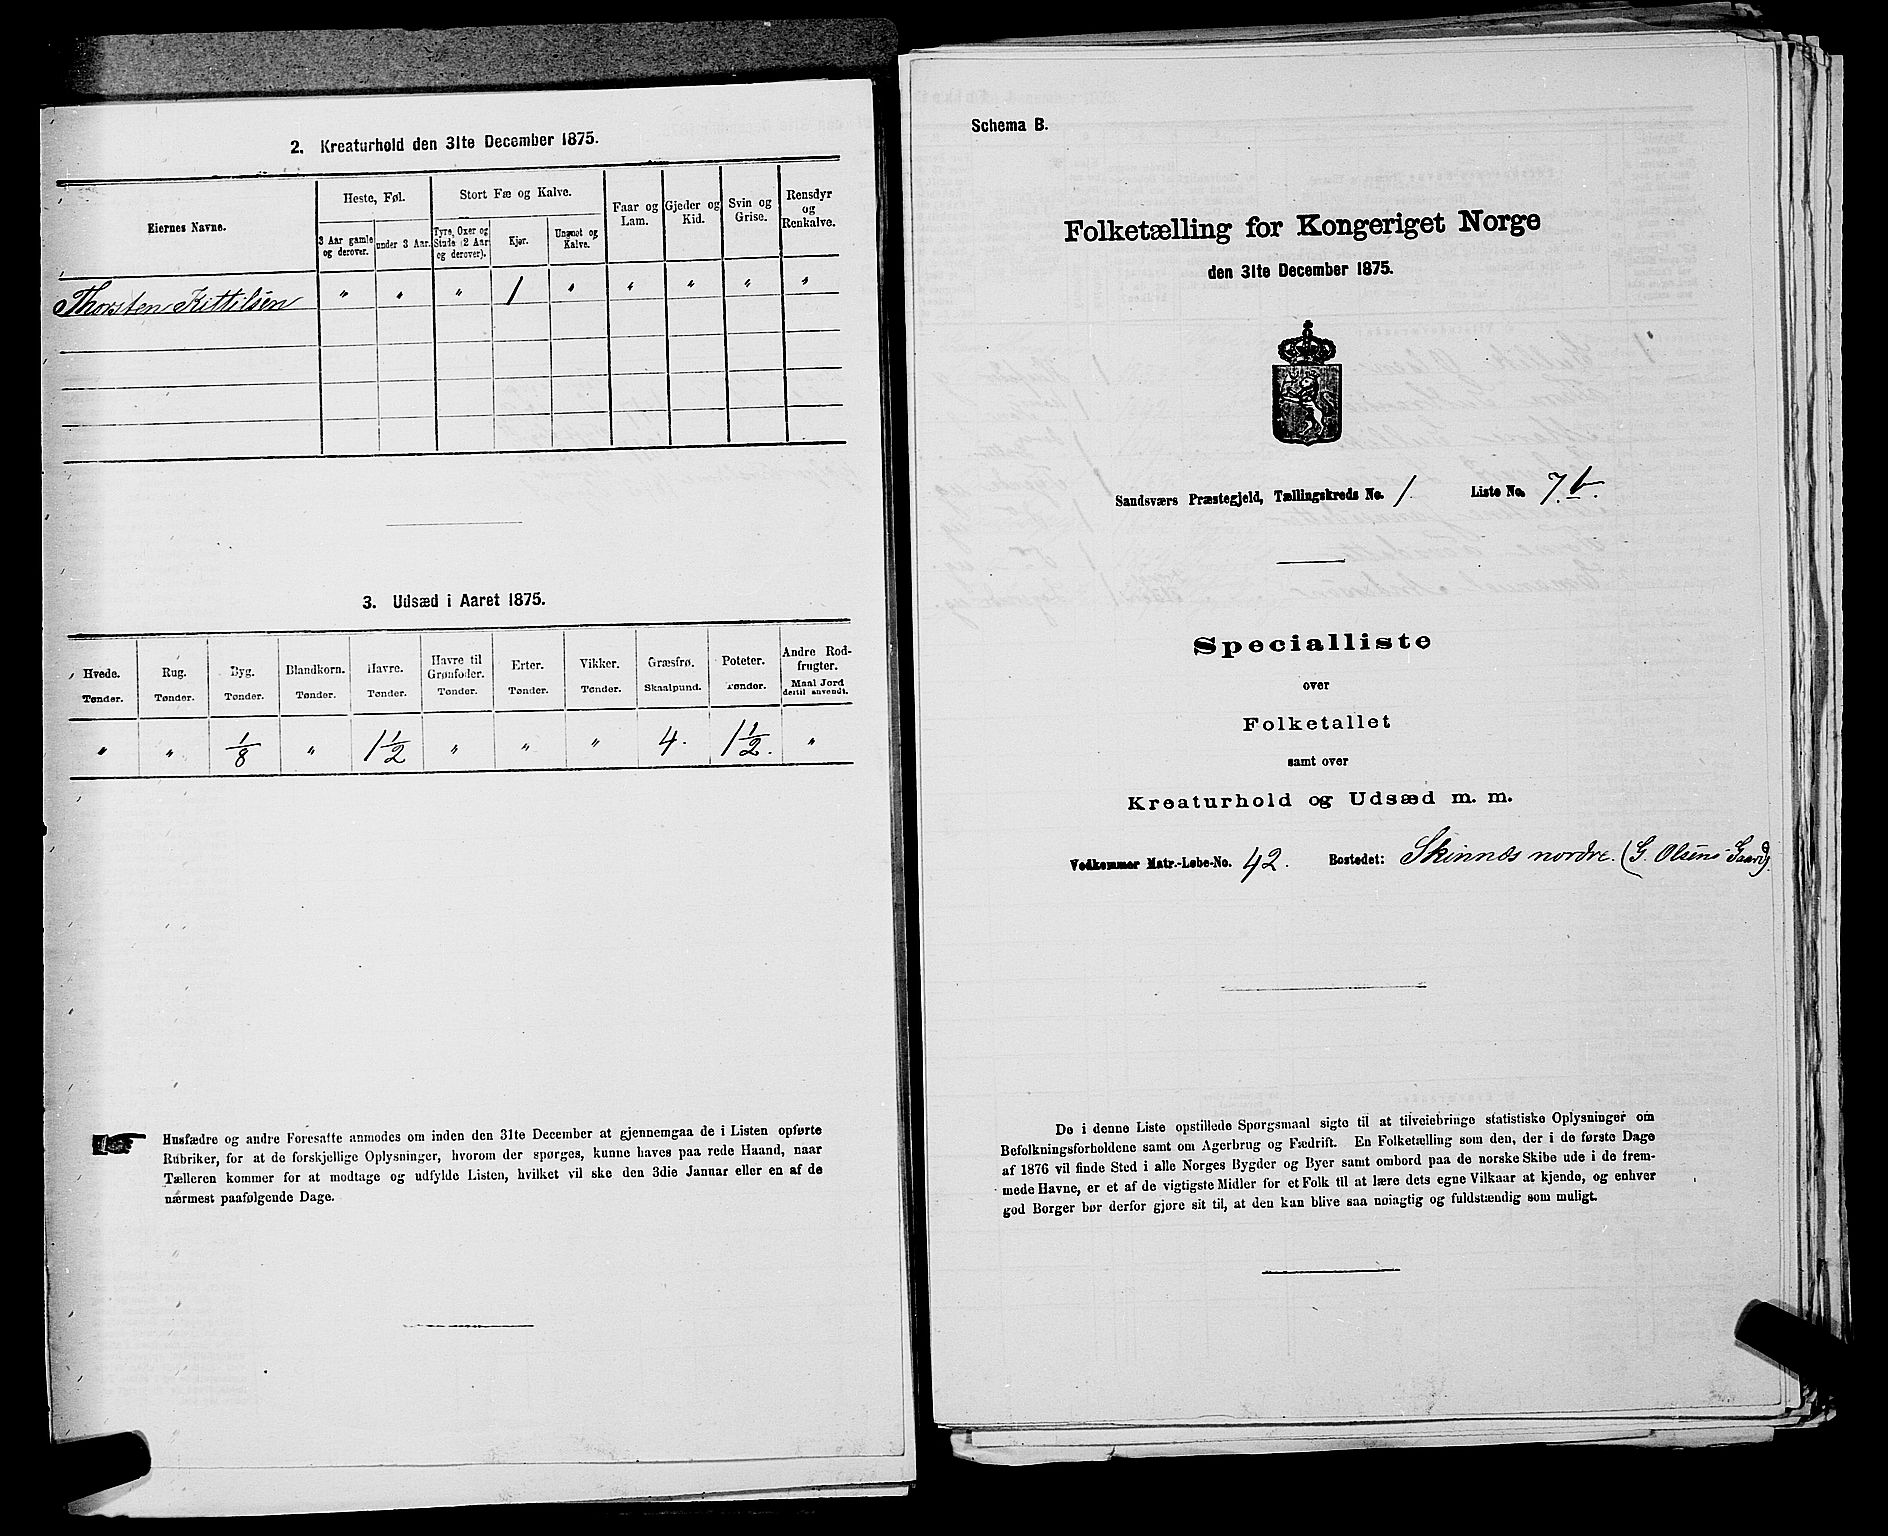 2. Kreaturhold den 31te December 1875.
Eiernes Navne.
Heste, Føl.
Stort Fæ og Kalve.
Faar og
Lam.
Gjeder og
Kid.
Svin og
Grise.
Rensdyr
og
Renkalve.
3 Aar gamle
og derover.
under 3 Aar.
Tyre, Oxer og
Stude (2 Aar
og derover).
Kjør.
Ungnøt og
Kalve.
Thorsten Kittilsen " " " 1 " " " " "
3. Udsæd i Aaret 1875.
Hvede. Rug. Byg. Blandkorn. Havre. Havre til Grønfoder. Erter. Vikker. Græsfrø. Poteter. Andre Rodfrugter.
Tønder. Tønder. Tønder. Tønder. Tønder. Tønder. Tønder. Tønder. Skaalpund. Tønder. Maal Jord dertil anvendt.
" " 1/8 " 1 1/2 " " " 4. 1 1/2. "
Husfædre og andre Foresatte anmodes om inden den 31te December at gjennemgaa de i Listen opførte
Rubriker, for at de forskjellige Oplysninger, hvorom der spørges, kunne haves paa rede Haand, naar
Tælleren kommer for at modtage og udfylde Listen, hvilket vil ske den 3die Januar eller en af de
nærmest paafølgende Dage.
Schema B.
Folketælling for Kongeriget Norge
den 31te December 1875.
Sandsværs Præstegjeld, Tællingskreds No. 1. Liste No. 7.b.
Specialliste
over
Folketallet
samt over
Kreaturhold og Udsæd m. m.
Vedkommer Matr.-Løbe-No. 42. Bostedet: Skinnæs nordre. (G. Olsens Gaard)
De i denne Liste opstillede Spørgsmaal sigte til at tilveiebringe statistiske Oplysninger om
Befolkningsforholdene samt om Agerbrug og Fædrift. En Folketælling som den, der i de første Dage
af 1876 vil finde Sted i alle Norges Bygder og Byer samt ombord paa de norske Skibe ude i de frem-
mede Havne, er et af de vigtigste Midler for et Folk til at lære dets egne Vilkaar at kjende, og enhver
god Borger bør derfor gjøre sit til, at den kan blive saa nøiagtig og fuldstændig som muligt.